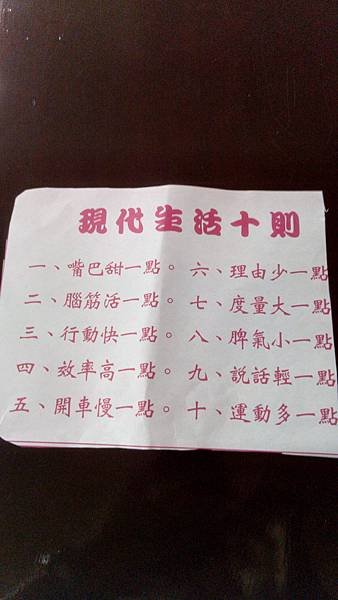 現代生活十則
一、嘴巴甜一點。
二、腦筋活一點。
三、行動快一點。
四、效率高一點。
五、開車慢一點。
六、理由少一點
七、度量大一點
八、脾氣小一點
九、說話輕一點
十、運動多一點